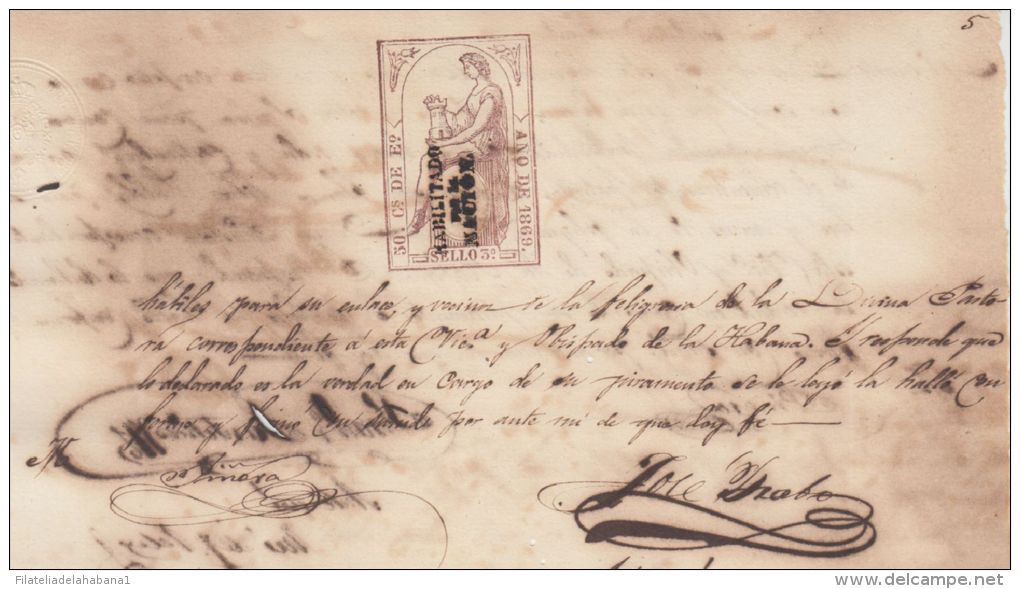 5
50. Cs. DE Eo.
AÑO DE 1869.
SELLO 3º
HABILITADO
POR LA
NACION.
hábiles para su enlace, y vecinos de la feligresia de la Divina Pasto
ra correspondiente á esta Vicª y Obispado de la Habana. Y responde que
lo declarado es la verdad en cargo de su juramento se le leyó la halló con
forme y firmó con por ante mi de que doy fé
Piñera
José
Filateliadelahabana1
www.delcampe.net